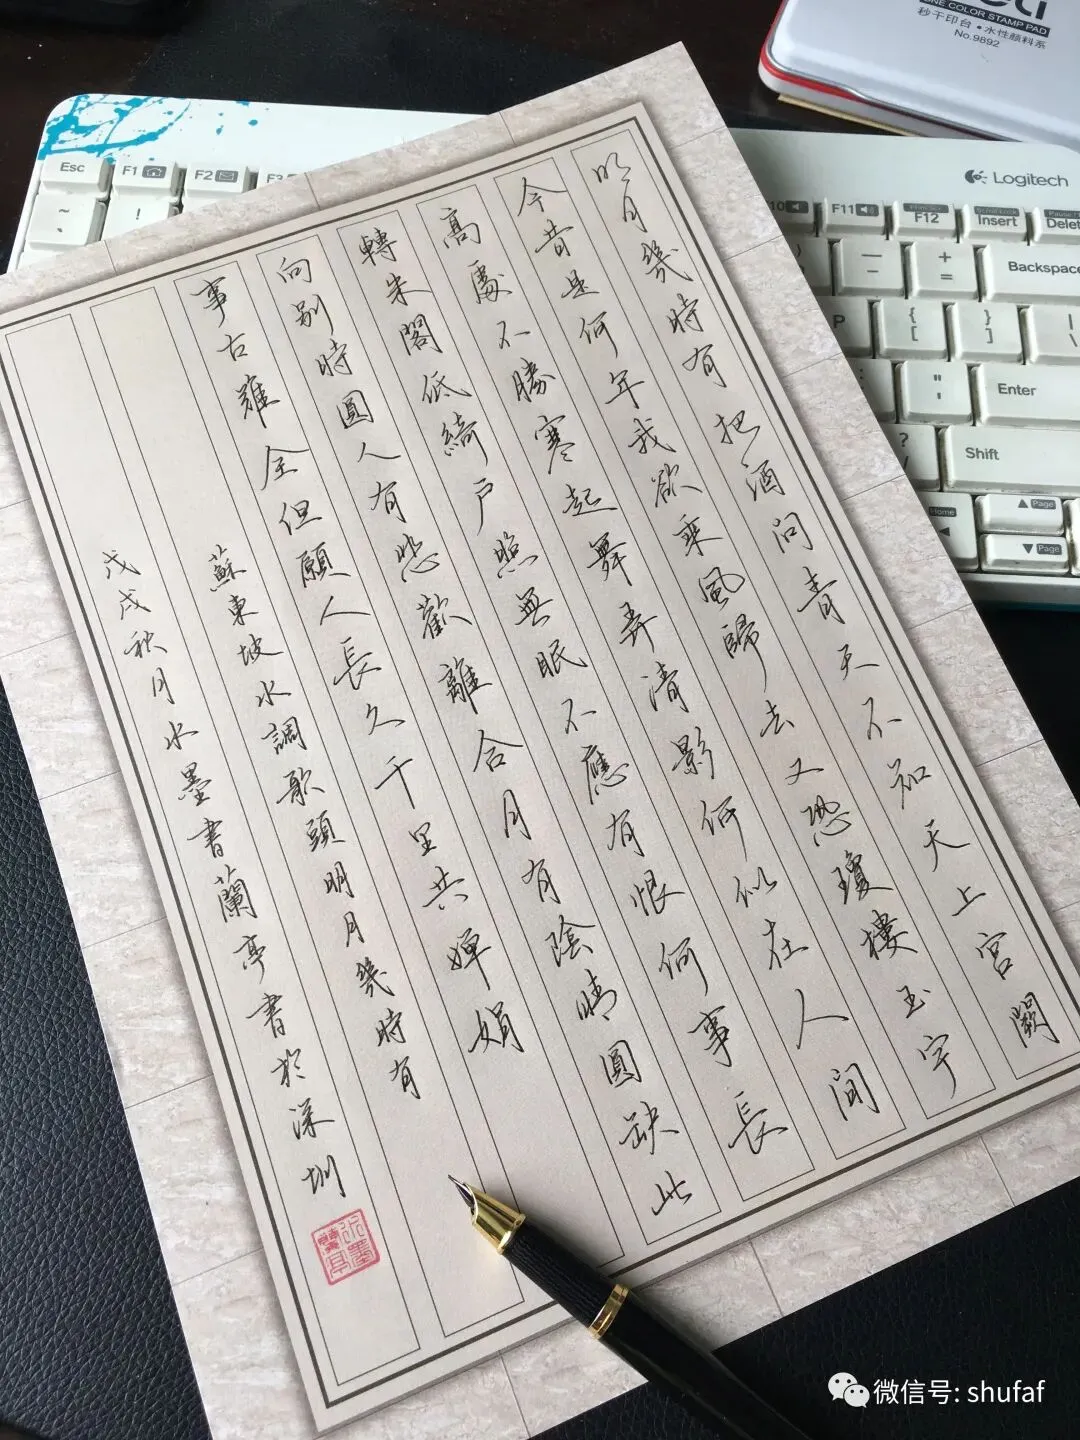 明月幾時有把酒问青天不知天上宫闕
今昔是何年我欲乘風歸去又恐瓊樓玉宇
高處不勝寒起舞弄清影何似在人间
轉朱閣低綺户照無眠不應有恨何事長
向别時圓人有悲歡離合月有陰晴圓缺此
事古難全但願人長久千里共婵娟
蘇東坡水調歌頭明月幾時有
戊戌秋月水墨書蘭亭書於深圳
ONE COLOR STAMP PAD
秒干印台•水性颜料系
No.9892
Logitech
Esc F1 F2 F3
F11 F12 Insert Delet
Backspace
Enter
Shift
Home Page
Page
微信号: shufaf